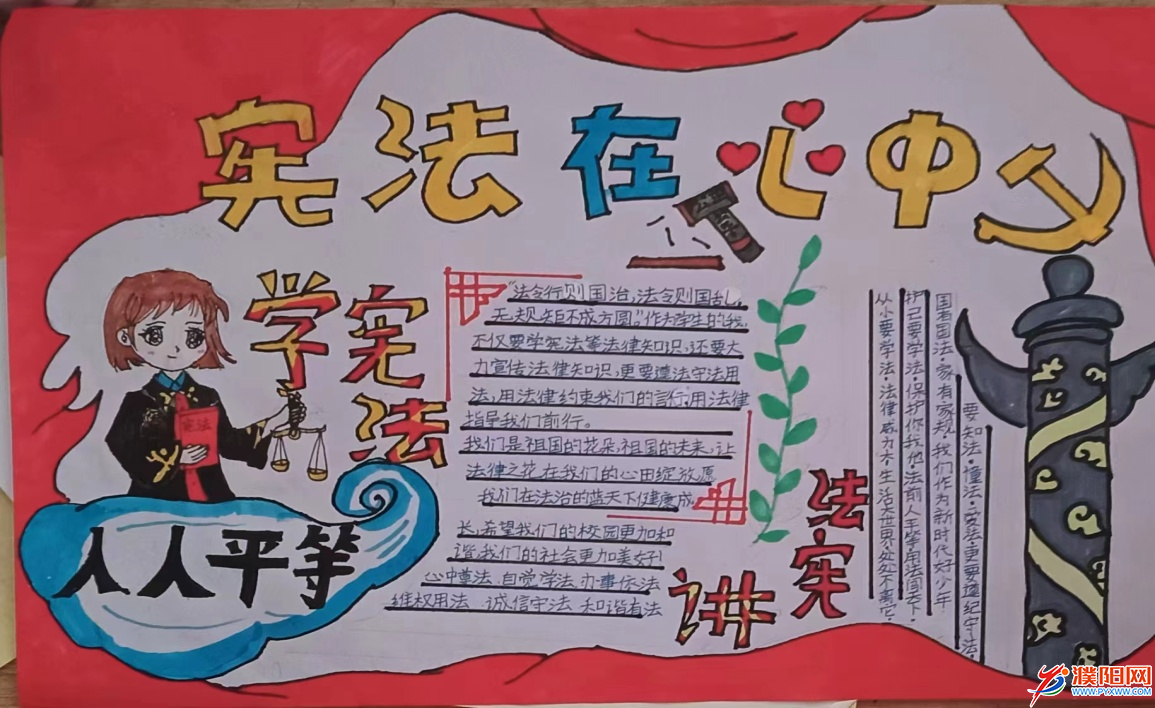 宪法在心中
学宪法
宪法
"法令行则国治,法令则国乱,
无规矩不成方圆。"作为学生的我,
不仅要学宪法等法律知识,还要大
力宣传法律知识,更要遵法守法用
法,用法律约束我们的言行,用法律
指导我们前行。
我们是祖国的花朵,祖国的未来,让
法律之花在我们的心田绽放愿
我们在法治的蓝天下健康成
长,希望我们的校园更加和
谐,我们的社会更加美好!
心中尊法、自觉学法、办事依法
维权用法、诚信守法、和谐有法
人人平等
讲宪法
国有国法,家有家规,我们作为新时代好少年
要知法,懂法,更要遵纪守法,
护己要学法,保护你我他,法前人人平等,
从小要学法,法律威力大,生活大世界,处处不离它,
濮阳网
WWW.PYXWW.COM